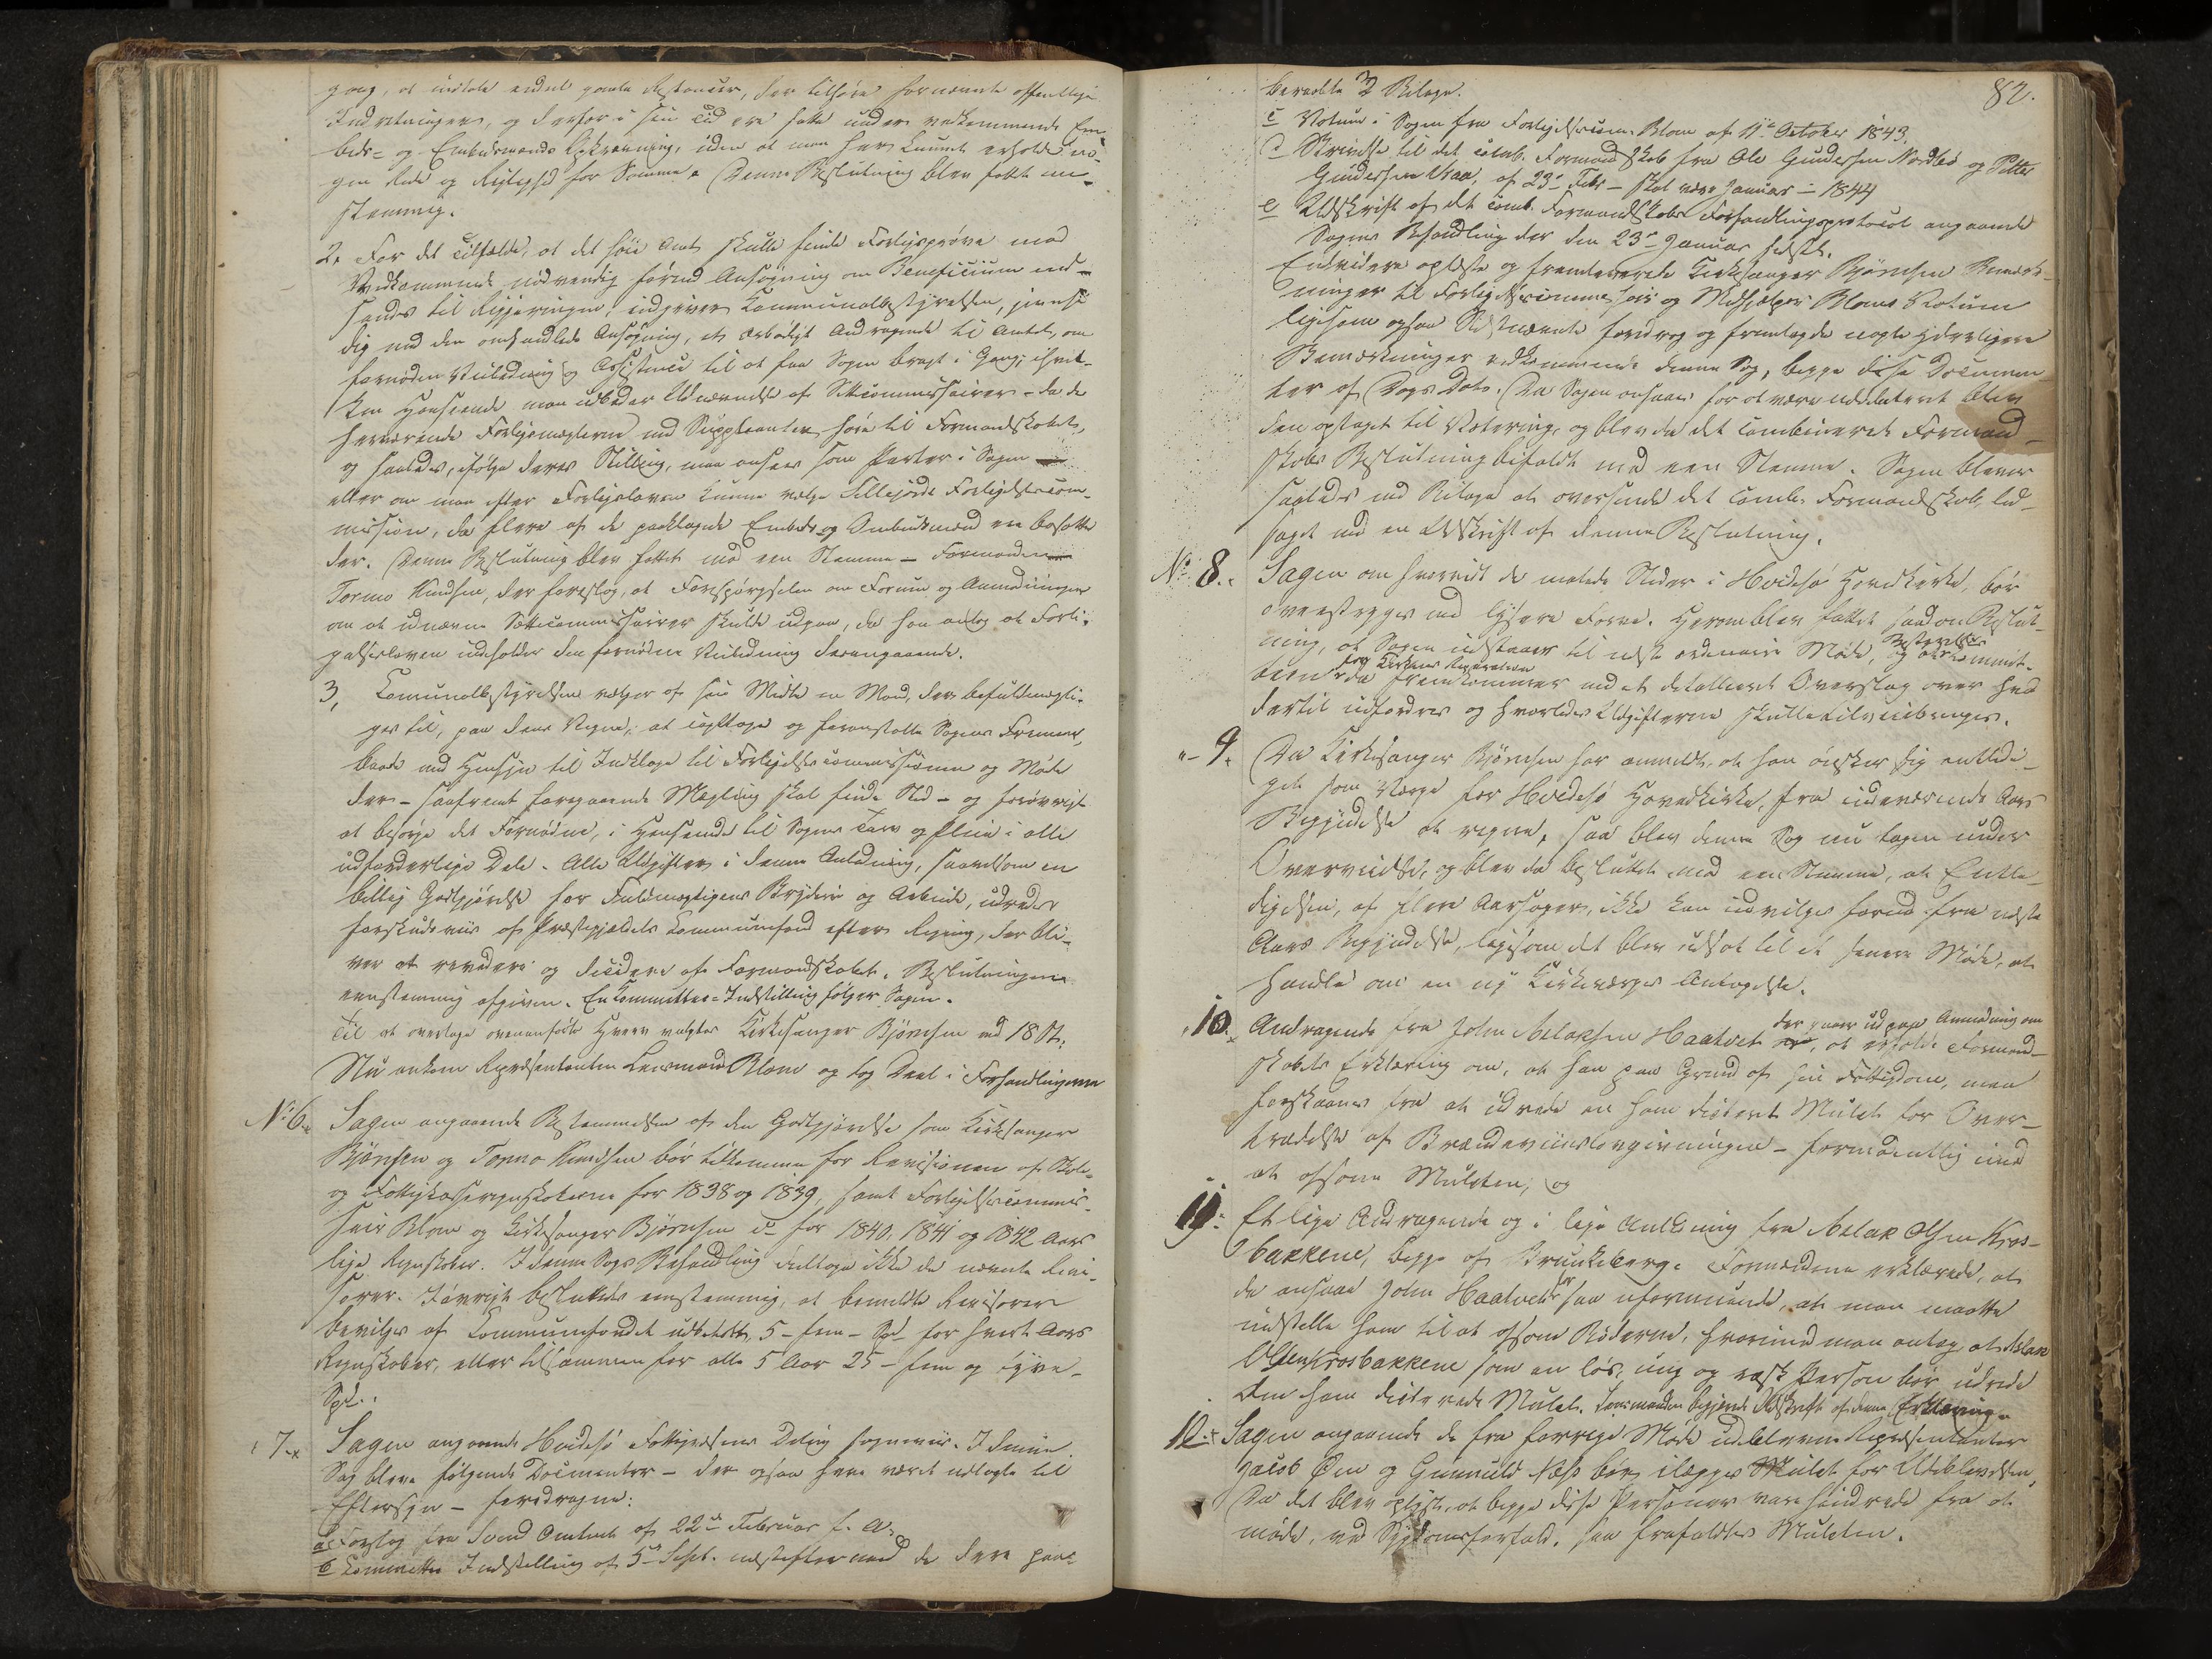 gang, at indtale endeel gamle Restancer, der tilhøre fornævnte offentlige
Indretninger, og derfor i sin Tid ere satte under vedkommende Em-
beds- og Ombudsmænds Opkrævning, uden at man har kunnet erholde no-
gen Rede og Rigtighed for Samme. Denne Beslutning blev fattet een-
stemmig.
2. For det Tilfælde, at det høie Amt skulle finde Forligsprøve med
Vedkommende nødvendig forend Ansøgning om Beneficium ind-
sendes til Regjeringen, indgiver Communalbestyrelsen, jevnsi-
dig med den omhandlede Ansøgning, et ærbødigt Andragende til Amtet, om
fornøden Veiledning og Assistence til at faa Sagen bragt i Gang, i hvil-
ken Henseende man udbeder Udnævnelse af Settecommissairer - da de
herværende Forligsmæglerne med Suppleanter høre til Formandskabet,
og saaledes, ifølge deres Stilling, maa ansees som Parter i Sagen
eller om man efter Forligsloven kunne vælge Sillejords Forligelsescom-
mission, da flere af de paaklagede Embeds og Ombudsmænd ere bosatte
der. Denne Beslutning blev fattet med een Stemme - Formanden
Tormo Knudsen, der foreslog, at Forespørgselen om Forum og Anmodningen
om at udnævne Settecommissairer skulde udgaa, da han antog at Forli-
gelsesloven indholder den fornødne Veiledning derangaaende.
3, Communalbestyrelsen vælger af sin Midte en Mand, der befuldmægti-
ges til, paa dens Vegne, at iagttage og foranstalte Sagens Fremme,
baade med Hensyn til Indklage til Forligelsescommissionen og Møde
der - saafremt foregaaende Mægling skal finde Sted - og forøvrigt
at besørge det Fornødne, i Henseende til Sagens Tarv og Pleie i alle
udfordrelige Dele. Alle Udgifter i denne Anledning, saavelsom en
billig Godtgjørelse for Fuldmægtigens Bryderie og Arbeide, udredes
forskudsviis af Præstegjældets Communefond efter Regning, der bli-
ver at revidere og decidere af Formandskabet. Beslutningen
eenstemmig afgiven. En Committee-Indstilling følger Sagen.
Til at overtage ovenanførte Hverv valgtes Kirkesanger Bjørnsen med 18 St.
Nu ankom Repræsentanten Lensmand Blom og tog Deel i Forhandlingerne
No 6. Sagen angaaende Bestemmelsen af den Godtgjørelse som Kirkesanger
Bjørnsen og Tormo Knudsen bør tilkomme for Revisionen af Skole-
og Fattigkasseregnskaberne for 1838 og 1839, samt Forligelsescommis-
sair Blom og Kirkesanger Bjørnsen do for 1840, 1841 og 1842 Aars
lige Regnskaber. I denne Sags Behandling deeltoge ikke de nævnte Revi-
sorer. Iøvrigt besluttedes eenstemmig, at bemeldte Revisorer
bevilges af Communefondet udbetalt, 5 - fem - Spd for hvert Aars
Regnskaber, eller tilsammen for alle 5 Aar 25 - fem og tyve -
Spd.
" 7. Sagen angaaende Hvidesø Fattigvæsens Deling sogneviis. I denne
Sag bleve følgende Documenter - der ogsaa have været udlagte til
Eftersyn - foredragne:
a Forslag fra Svend af 22de Februar f. A.
b Committee Indstilling af 5te Septbr. næstefter med de dere paa-
82.
beraabte 2 Bilage.
c Votum i Sagen fra Forligelsescom. Blom af 11te October 1843.
d Skrivelse til det comb. Formandskab fra Ole Gundersen Nordbø og Petter
Gundersen Vraa, af 23de Febr - skal være Januar - 1844
e Udskrift af det comb. Formandskabs Forhandlingsprotocol angaaende
Sagens Behandling der den 23de Januar sidstl.
Endvidere oplæste og fremleverede Kirkesanger Bjørnsen Bemærk-
ninger til Forligelsescommissair og Medhjælper Bloms Votum
ligesom ogsaa Sidstnævnte foredrog og fremlagde nogle yderligere
Bemærkninger vedkommende denne Sag, begge disse Documen-
ter af Dags Dato. Da Sagen ansaaes for at være uddebatteret blev
den optaget til Votering, og blev da det combinerede Formand-
skabs Beslutning bifaldt med een Stemme. Sagen bliver
saaledes med Bilage at oversende det comb. Formandskab, led-
saget med en Udskrift af denne Beslutning.
No 8. Sagen om hvorvidt de malede Steder i Hvidesø Hovedkirke, bør
overstryges med lysere Farve. Herom blev fattet saadan Beslut-
ning, at Sagen udstaaer til næste ordinaire Møde, og Committ-
for Kirkens Reparation
da fremkommer med et detailleret Overslag over hvad
dertil udfordres og hvorledes Udgifterne skulle tilveiebringes.
" 9. Da Kirkesanger Bjørnsen har anmeldt, at han ønsker sig entledi-
get som Værge for Hvidesø Hovedkirke, fra indeværende Aars
Begyndelse at regne, saa blev denne Sag nu tagen under
Overveielse, og blev da besluttet med een Stemme, at Entle-
digelsen, af flere Aarsager, ikke kan indvilges forend fra næste
Aars Begyndelse, ligesom det blev udsat til et senere Møde, at
handle om en ny Kirkeværges Antagelse.
" 10. Andragende fra John Aslaksen Haatvet der gaaer ud paa Anmodning om
at erholde Formand-
skabets Erklæring om, at han paa Grund af sin Fattigdom, maa
forskaanes fra at udrede en ham dicteret Mulct for Over-
trædelse af Brændeviinslovgivningen - formodentlig imod
at afsone Mulcten; og
11. Et lige Andragende og i lige Anledning fra Aslak Olsen Kros-
bakkene, begge af Brunkeberg. Formændene erklærede, at
de ansaae John Haatvet for saa uformuende, at man maatte
indstille ham til at afsone Bøderne, hvorimod man antog at Aslak
Olsen Krosbakkene som en løs, ung og rask Person bør udrede
den ham dicterede Mulct. Lensmanden begjerede Udskrift af denne Erklæring.
12. Sagen angaaende de fra forrige Møde udeblevne Repræsentanter
Jacob Øen og Gunnuld Næs bør ilægges Mulct for Udeblivelsen.
Da det blev oplyst, at begge disse Personer vare hindrede fra at
møde, ved Sygdomsforfald, saa frafaldtes Mulcten.